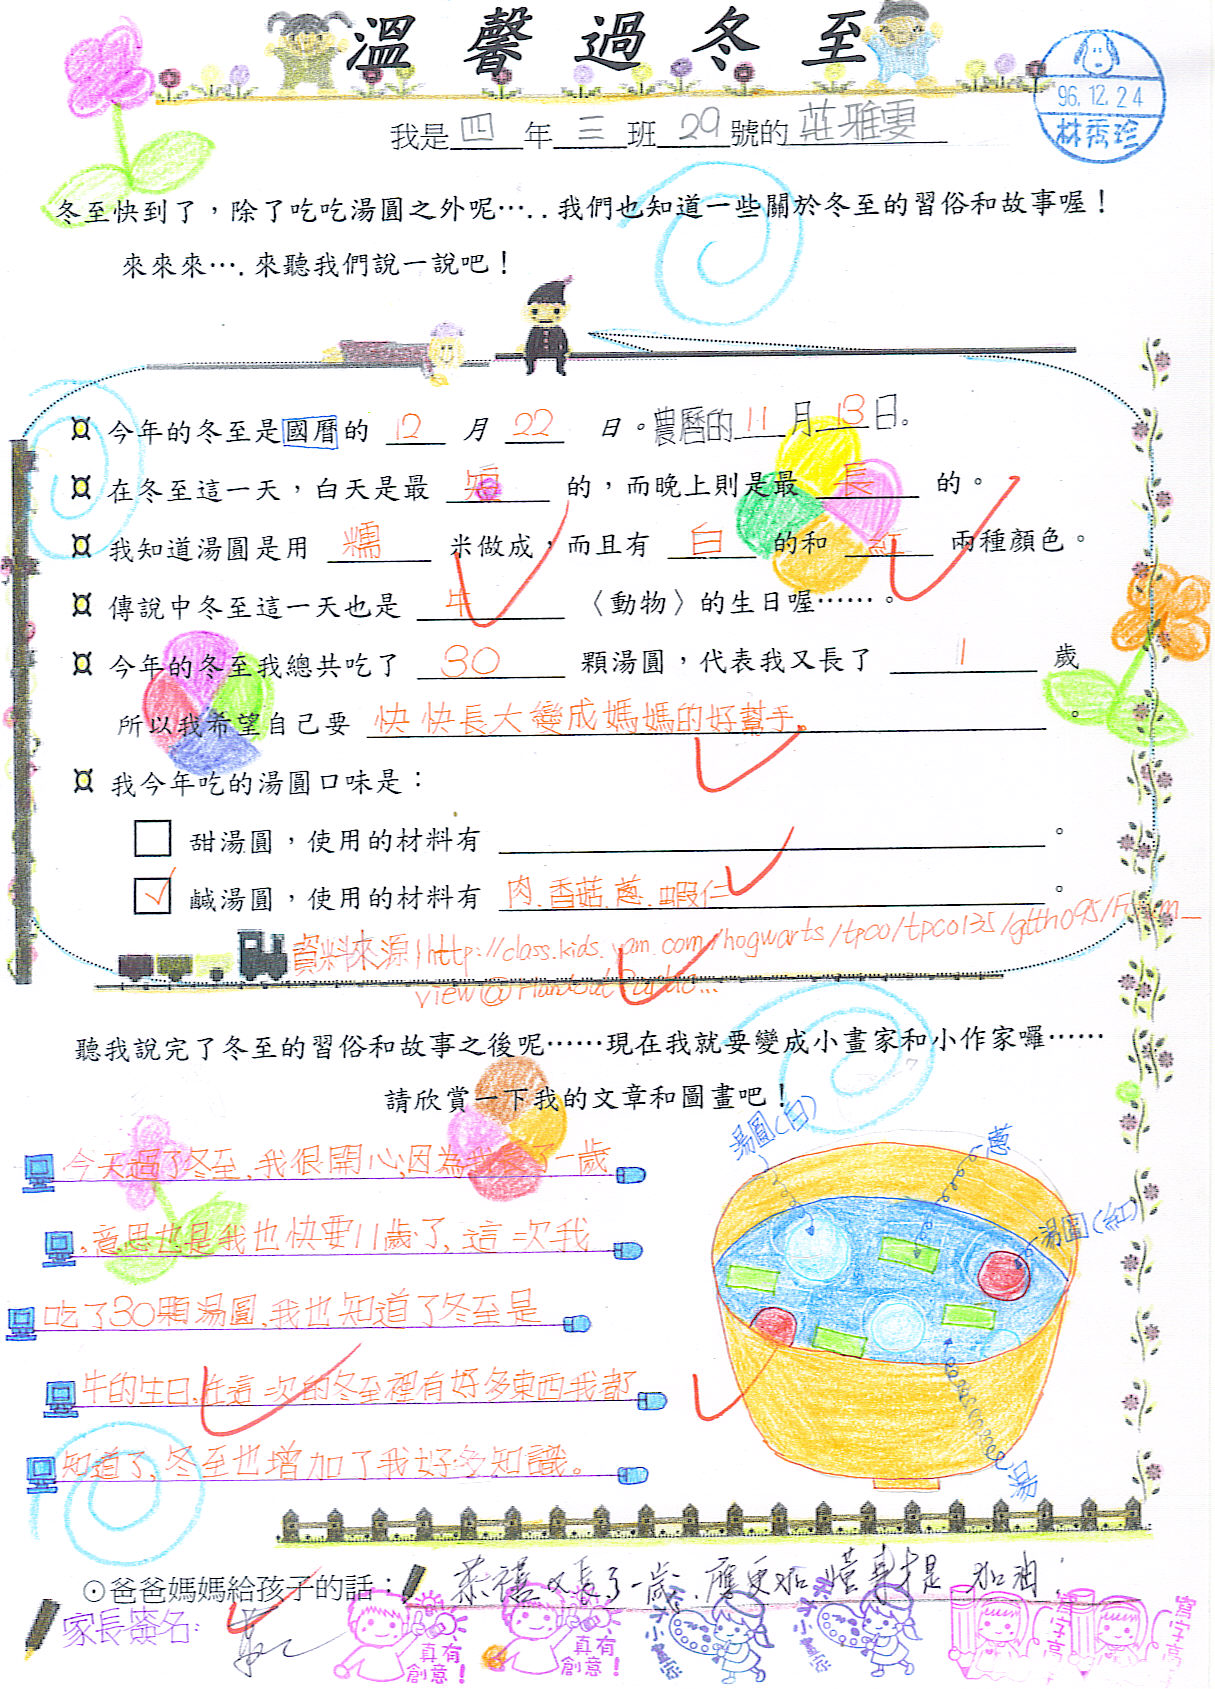 溫馨過冬至
96.12.24
林秀珍
我是四年三班29號的莊雅雯
冬至快到了，除了吃吃湯圓之外呢…..我們也知道一些關於冬至的習俗和故事喔！
來來來….來聽我們說一說吧！
今年的冬至是國曆的 12 月 22 日。農曆的11月13日。
在冬至這一天，白天是最 短 的，而晚上則是最 長 的。
我知道湯圓是用 糯 米做成，而且有 白 的和 紅 兩種顏色。
傳說中冬至這一天也是 牛 〈動物〉的生日喔……。
今年的冬至我總共吃了 30 顆湯圓，代表我又長了 1 歲
所以我希望自己要 快快長大變成媽媽的好幫手。。
我今年吃的湯圓口味是：
甜湯圓，使用的材料有 。
鹹湯圓，使用的材料有 肉.香菇.蔥.蝦仁 。
資料來源 http://class.kids.yam.com/hogwarts/tpco/tpco135/gtth095/
view@
聽我說完了冬至的習俗和故事之後呢……現在我就要變成小畫家和小作家囉……
請欣賞一下我的文章和圖畫吧！
今天過了冬至,我很開心,因為我長了一歲
,意思也是我也快要11歲了,這次我
吃了30顆湯圓,我也知道了冬至是
牛的生日,在這次的冬至裡有好多東西我都
知道了,冬至也增加了我好多知識。
湯圓(白)
蔥
湯圓(紅)
湯
⊙爸爸媽媽給孩子的話：恭禧又長了一歲,應更加懂事才是 加油!
家長簽名:
真有創意！
真有創意！